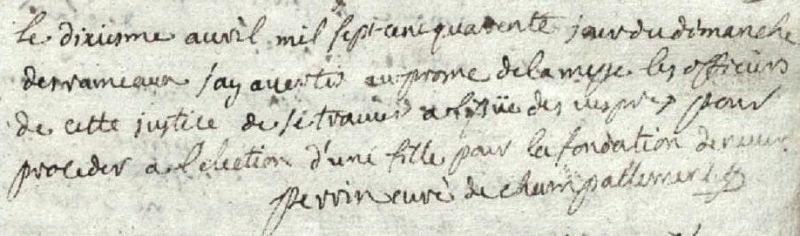 le dixiesme avril mil sept cent quarente jour du dimanche
des rameaux j'ay avertis au prome de la messe les officiers
de cette justice de se trouver a l'issüe des vespres pour
proceder a l'election d'une fille pour la fondation de
perrin curé de champallement